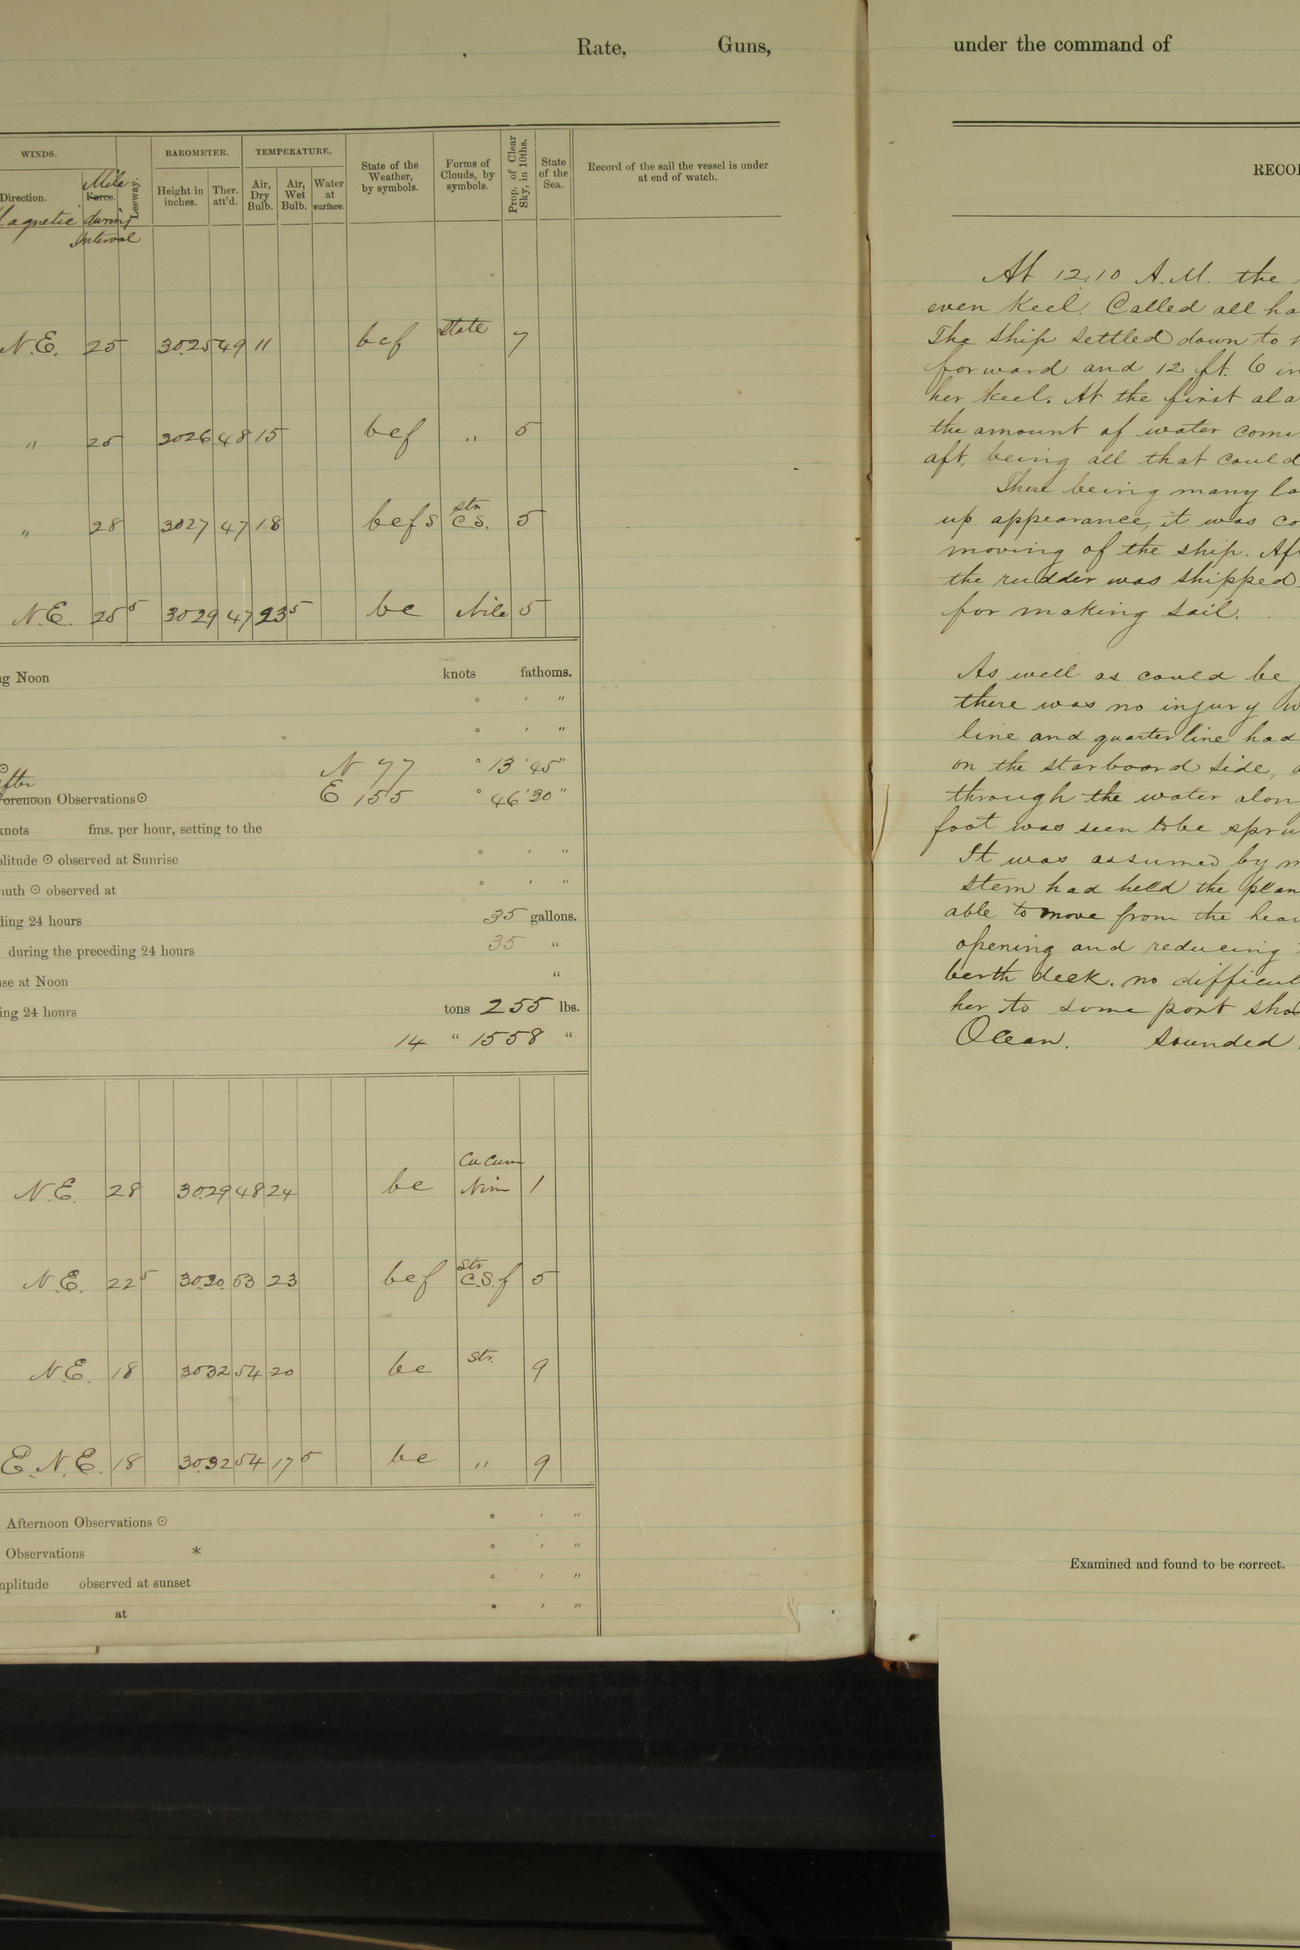 Rate, Guns,
WINDS. BAROMETER. TEMPERATURE. State of the Weather, by symbols. Forms of Clouds, by symbols. Prop. of Clear Sky, in 10ths. State of the Sea. Record of the sail the vessel is under at end of watch.
Direction. Force. Leeway. Height in inches. Ther. att'd. Air, Dry Bulb. Air, Wet Bulb. Water at surface.
Mile
agnetic during
Interval
N.E. 25 30.25 49 11 bcf 7
" 25 3026 48 15 bcf " 5
" 28 3027 47 18 bcfs Str C.S. 5
N.E. 25 5 3029 47 23 5 bc 5
g Noon knots fathoms.
° ' "
° ' "
N 77 ° 13 ' 45 "
after
Forenoon Observations ⊙ E 155 ° 46 ' 30 "
knots fms. per hour, setting to the
plitude ⊙ observed at Sunrise ° ' "
muth ⊙ observed at ° ' "
ding 24 hours 35 gallons.
during the preceding 24 hours 35 "
se at Noon "
ing 24 hours tons 255 lbs.
14 " 1558 "
N.E. 28 30.29 48 24 bc Cum Nim 1
N.E. 22 5 30.30 53 23 bcf Str C.S.f 5
N.E. 18 3032 54 20 bc Str. 9
E.N.E. 18 3032 54 17 5 bc " 9
Afternoon Observations ⊙ ° ' "
Observations * ° ' "
mplitude observed at sunset ° ' "
at ° ' "
under the command of
RECOR
At 12.10 A.M. the
even keel. Called all ha
The ship settled down to
forward and 12 ft. 6 in
her keel. At the first ala
the amount of water comi
aft, being all that could
There being many lo
up appearance, it was co
moving of the ship. Aft
the rudder was shipped
for making sail.
As well as could be
there was no injury w
line and quarter line had
on the starboard side, a
through the water alon
foot was seen to be spru
It was assumed by m
stem had held the plan
able to move from the heav
opening and reducing
berth deck. no difficul
her to some port sho
Ocean. Sounded
Examined and found to be correct.